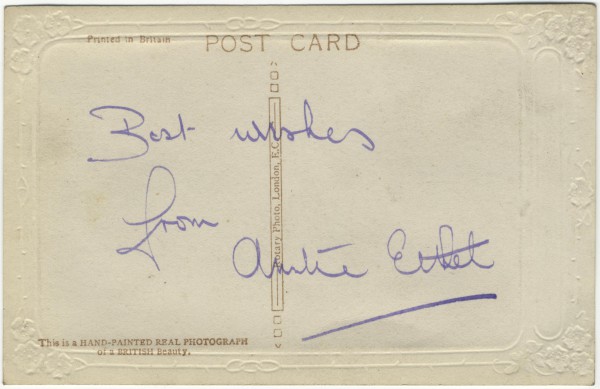 Printed in Britain
POST CARD
Best wishes
from
Auntie Ethel
Rotary Photo, London, E.C.
This is a HAND-PAINTED REAL PHOTOGRAPH
of a BRITISH Beauty.